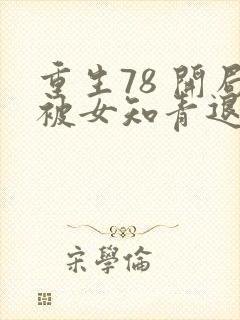 重生78 開局
被女知青退
宋學倫